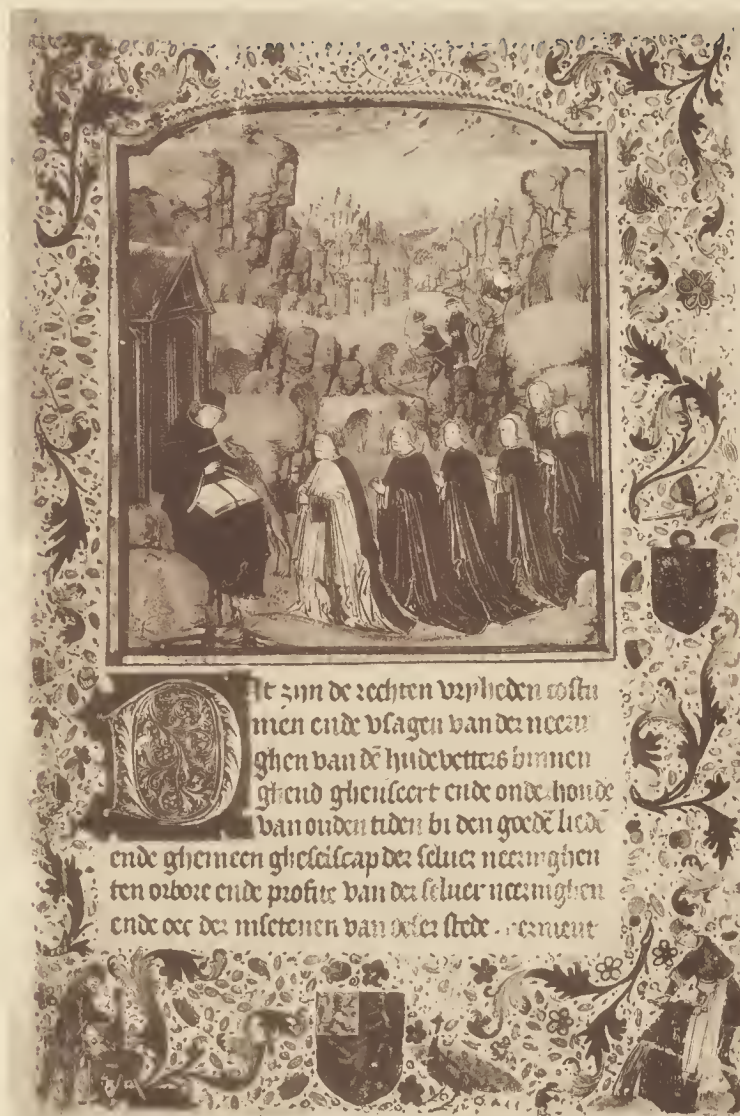 Dit zijn de rechten vrijheden costu
men ende vsagen van der neerin
ghen van dē hudevetters binnen
ghend gheuseert ende onderhoude
van ouden tiden bi den goedē liedē
ende ghemeen gheselscap der seluer neeringhen
ten orbore ende profite van der seluer neeringhen
ende oec der insetenen van deser stede